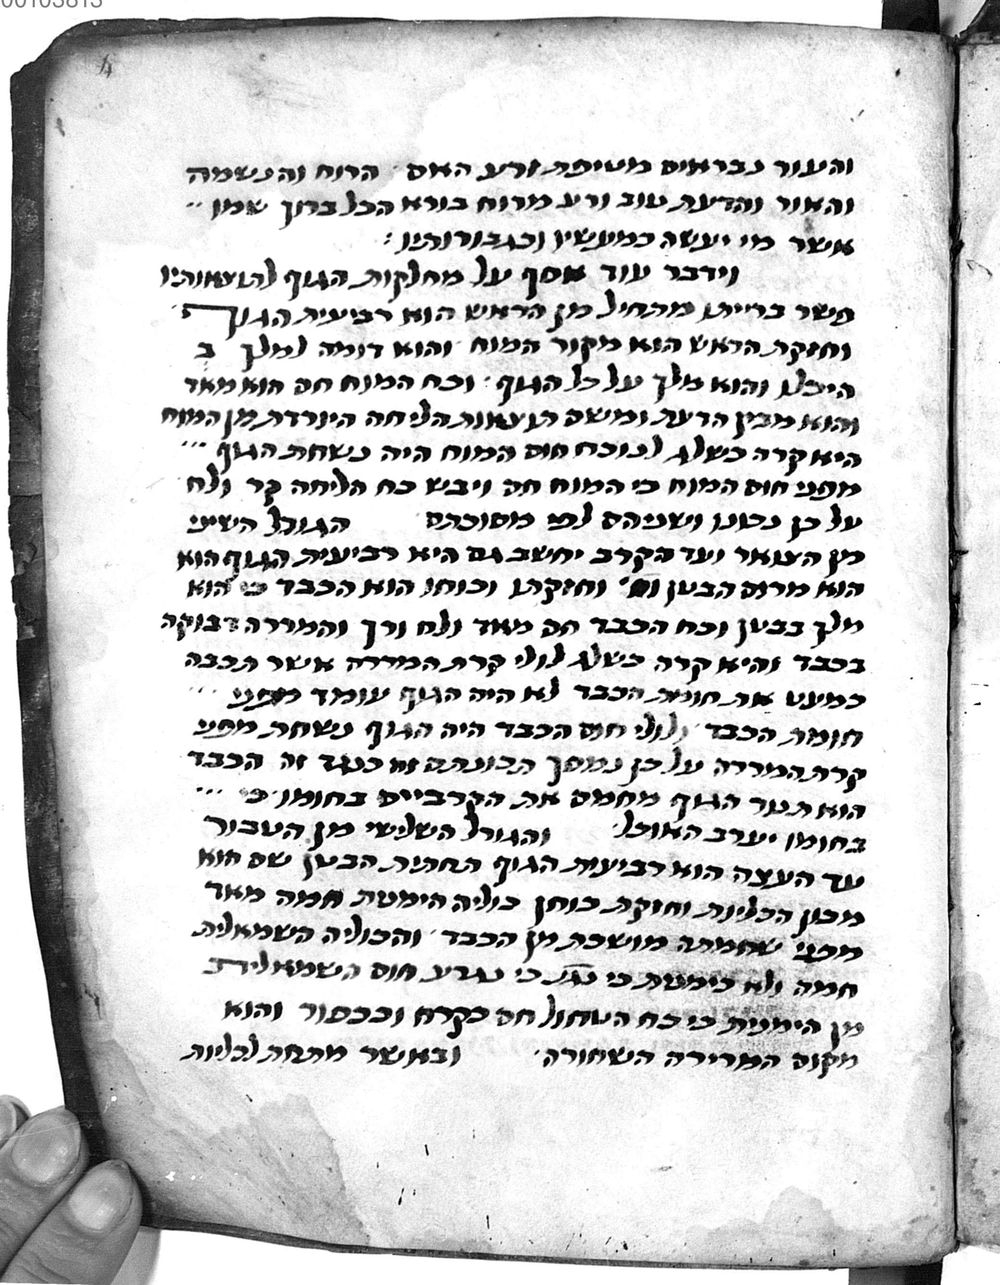 00103813
4
והעור נבראים מטיפת זרע האם הרוח והנשמה
והאור והדעת טוב ורע מרוח בורא הכל ברוך שמו
אשר מי יעשה כמעשיו וכגבורותיו :
וידבר עוד אסף על מחלקות הגוף לתוצאותיו
פשר ברייתו מתחיל מן הראש הוא רביעית הגוף
וחזקת הראש הוא מקור המוח והוא דומה למלך ב
היכלו והוא מלך על כל הגוף וכח המוח חם הוא מאד
והוא מבין הדעת ומשם תוצאות הליחה היורדת מן המוח
היא קרה כשלג לנוכח חום המוח היה נשחת הגוף
מפני חום המוח כי המוח חם ויבש כח הליחה קר ולח
על כן נכונו ושניהם לפי מסוכתם הגורל השיני
מן הצואר ועד הקרב יחשב גם היא רביעית הגוף הוא
הוא מרום הבטן וחזקתו וכוחו הוא הכבד כי הוא
מלך בבטן וכח הכבד חם מאד ולח ורך והמררה דבוקה
בכבד והיא קרה כשלג לולי קרת המררה אשר תכבה
כמעט את חומת הכבד לא היה הגוף עומד מפני
חומת הכבד ולולי חום הכבד היה הגוף נשחת מפני
קרת המררה על כן נמסך תכונתם זה כנגד זה הכבד
הוא תנור הגוף מחמם את הקרביים בחומו כי
בחומו יערב האוכל והגורל השלישי מן הטבור
עד העצה הוא רביעית הגוף תחתית הבטן שם הוא
מכון הכליות וחזקת כוחן כוליה הימנית חמה מאד
מפני שחמתה מושכת מן הכבד והכוליה השמאלית
חמה ולא כימנית כי נגרע חום השמאלית
מן הימנית כי כח הטחול חם כקרח וככפור והוא
מקום המרירה השחורה ובאשר מתחת לכליות